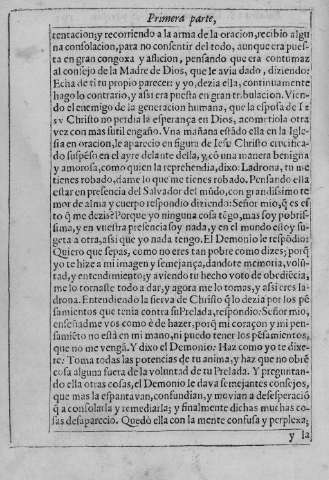 Primera parte,
tentacion; y recorriendo a la arma de la oracion, recibio algu
na consolacion, para no consentir del todo, aunque era pues-
ta en gran congoxa y aflicion, pensando que era contumaz
al consejo de la Madre de Dios, que le avia dado, diziendo:
Echa de ti tu propio parecer: y yo, dezia ella, continuamente
hago lo contrario, y assi era puesta en gran tribulacion. Vien-
do el enemigo de la generacion humana, que la esposa de Ie
sv Christo no perdia la esperança en Dios, acometiola otra
vez con mas sutil engaño. Vna mañana estãdo ella en la Igle-
sia en oracion, le aparecio en figura de Iesu Christo crucifica-
do suspẽso en el ayre delante della, y cõ vna manera benigna
y amorosa, como quien la reprehendia, dixo: Ladrona, tu me
tienes robado, dame lo que me tienes robado. Pensando ella
estar en presencia del Salvador del mũdo, con grandissimo te
mor de alma y cuerpo respondio diziendo: Señor mio, q̃ es es
to q̃ me dezis? Porque yo ninguna cosa tẽgo, mas soy pobris-
sima, y en vuestra presencia soy nada, y en el mundo estoy su-
geta a otra, assi que yo nada tengo. El Demonio le respõdio:
Quiero que sepas, como no eres tan pobre como dizes; porq̃
yo te hize a mi imagen y semejança, dandote memoria, volũ-
tad, y entendimiento; y aviendo tu hecho voto de obediẽcia,
me lo tornaste todo a dar, y agora me lo tomas, y assi eres la-
drona. Entendiendo la sierva de Christo q̃ lo dezia por los pẽ
samientos que tenia contra su Prelada, respondio: Señor mio,
enseñadme vos como è de hazer, porq̃ mi coraçon y mi pen-
samiẽto no està en mi mano, ni puedo tener los pẽsamientos,
que no me vengã. Y dixo el Demonio: Haz como yo te dixe-
re: Toma todas las potencias de tu anima, y haz que no obrẽ
cosa alguna fuera de la voluntad de tu Prelada. Y preguntan-
do ella otras cosas, el Demonio le dava semejantes consejos,
que mas la espantavan, confundian, y movian a desesperaciõ
q̃ a consolarla y remediarla; y finalmente dichas muchas co-
sas desaparecio. Quedò ella con la mente confusa y perplexa;
y la